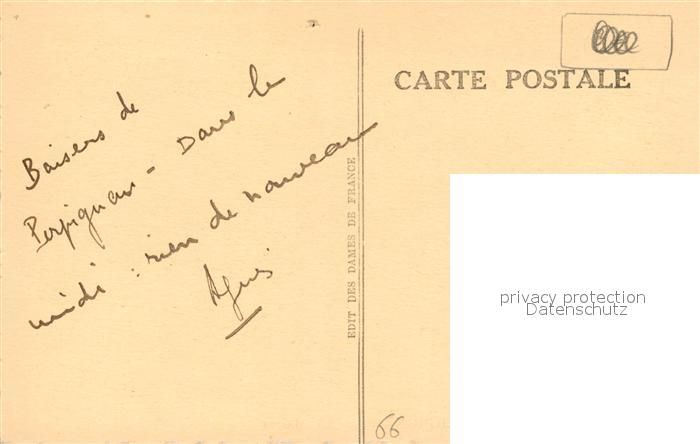 CARTE POSTALE
Baisers de
Perpignan - Dans le
midi : rien de nouveau
EDIT DES DAMES DE FRANCE
privacy protection
Datenschutz
66